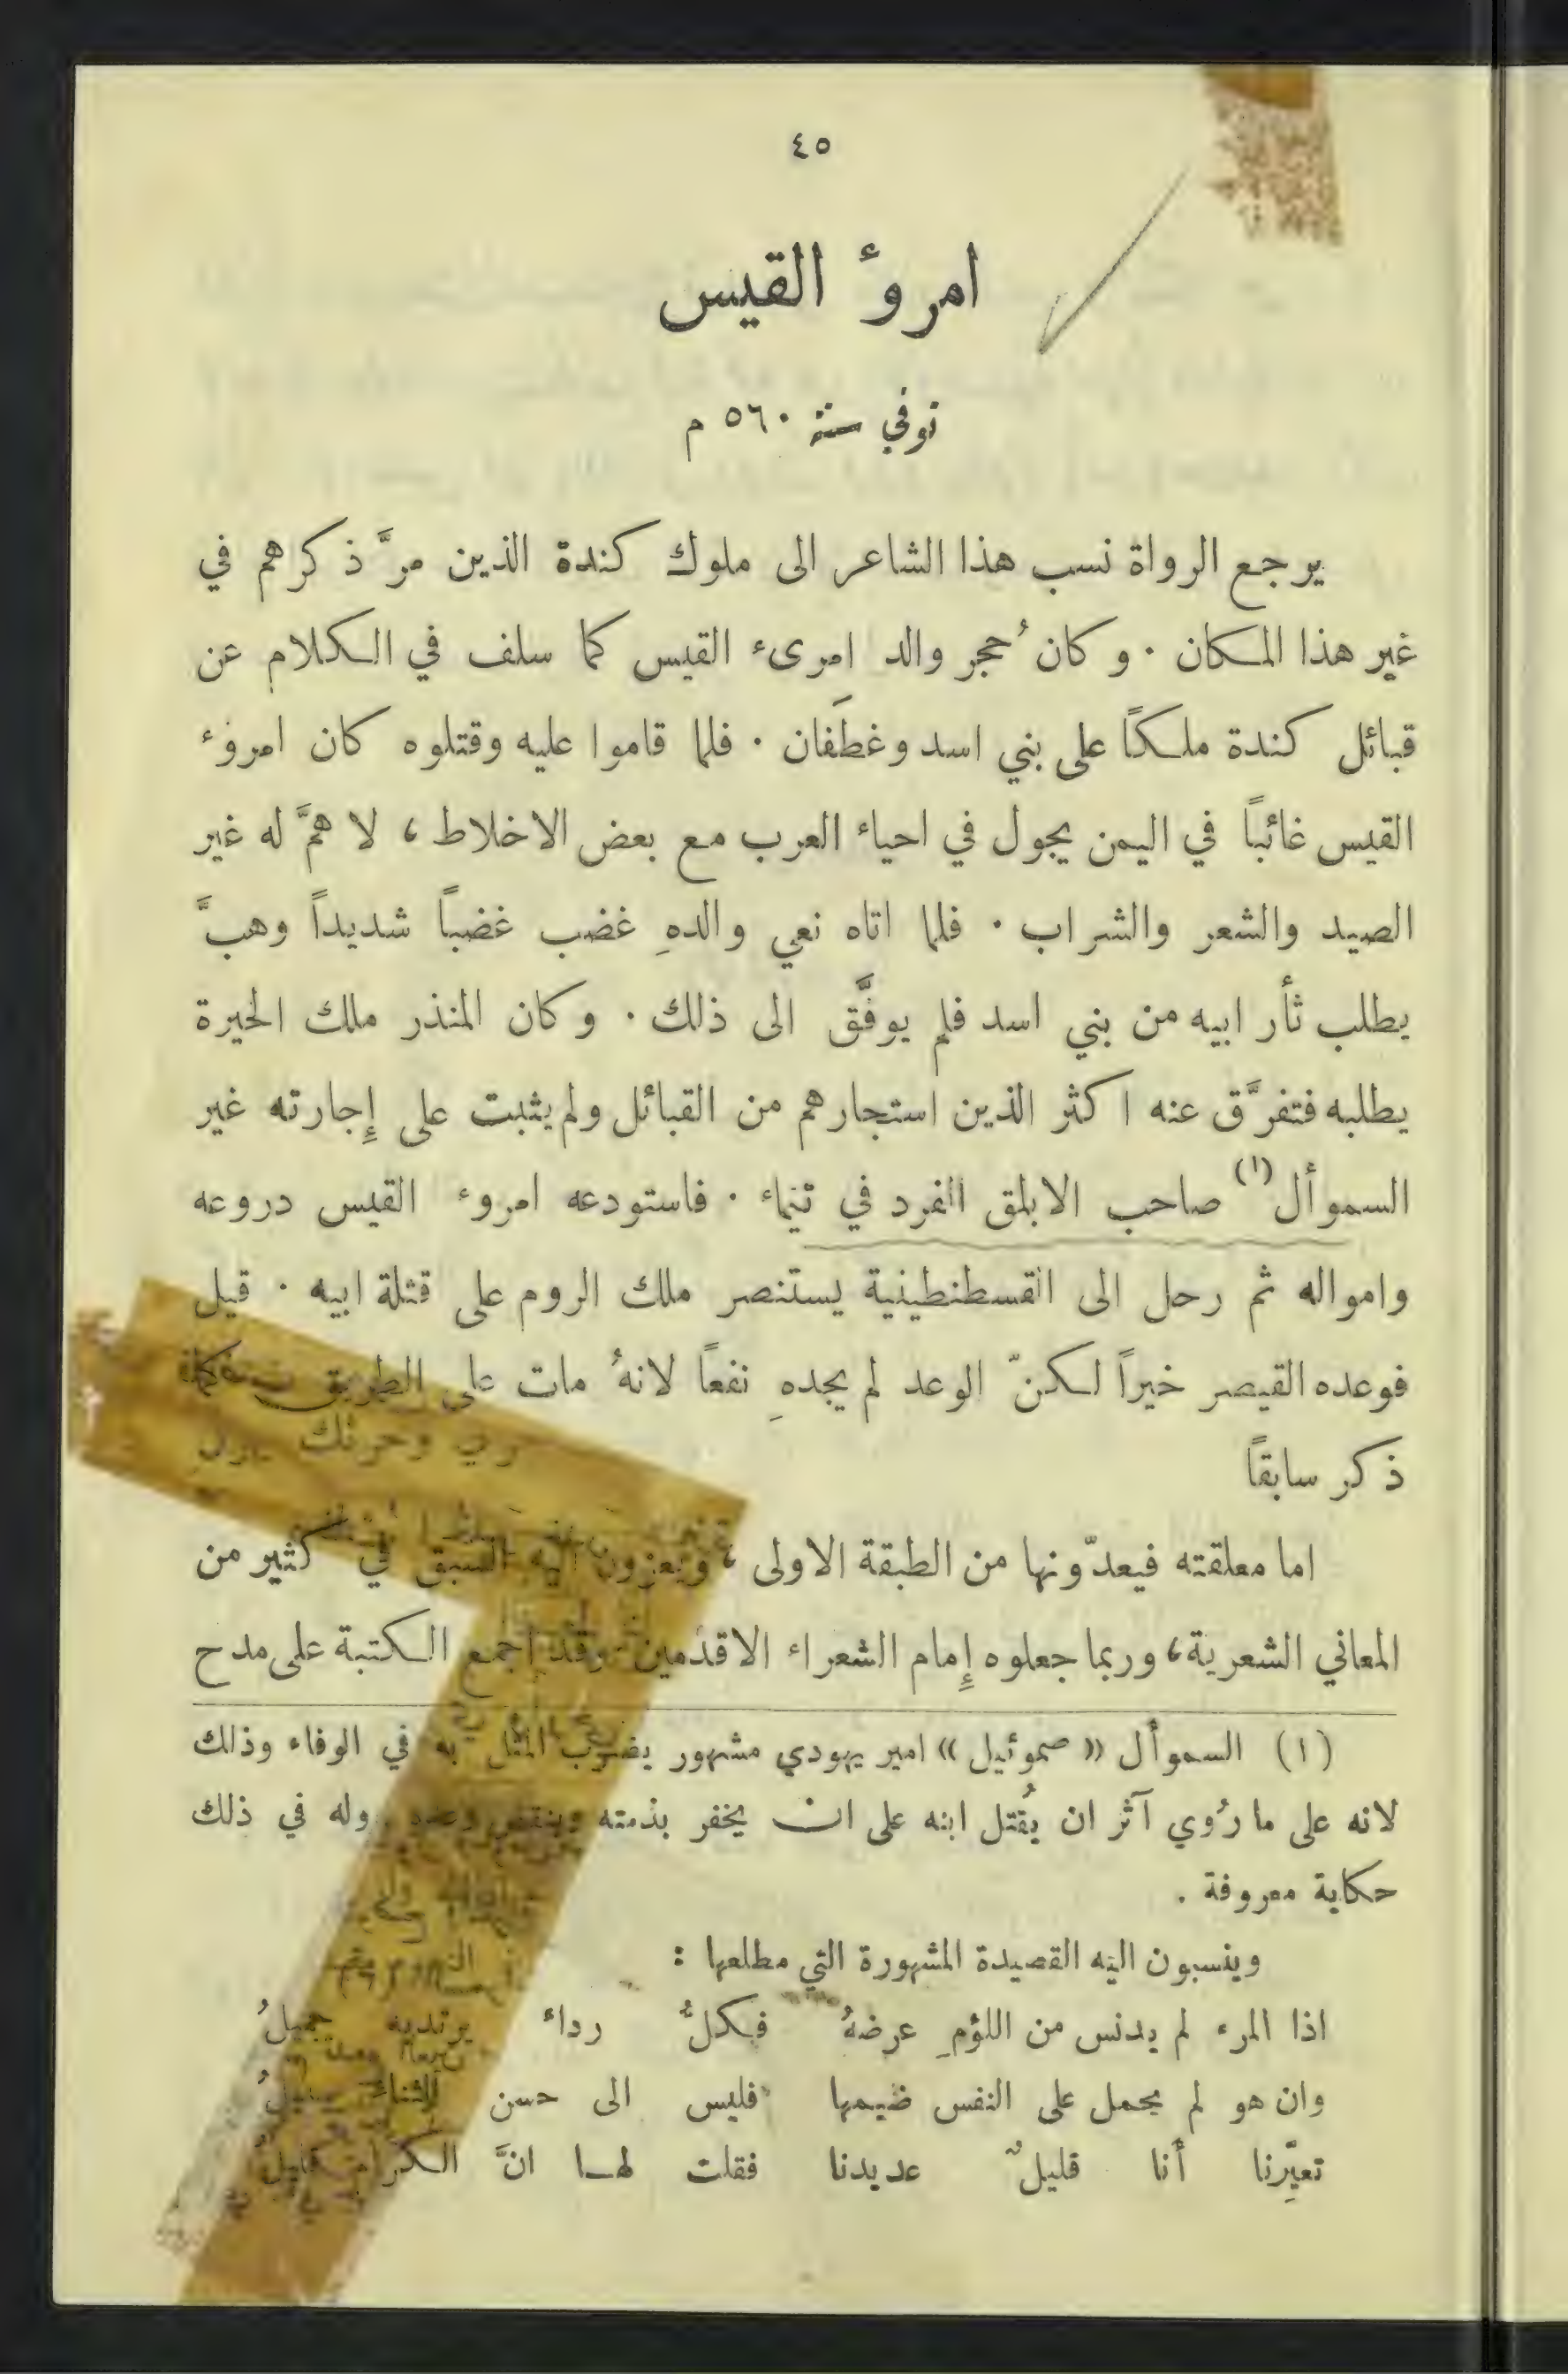 ٤٥
امروٴ القيس
توفي سنة ٥٦٠ م
يرجع الرواة نسب هذا الشاعر الى ملوك كندة الذين مرَّ ذكرهم في
غير هذا المكان . وكان حُجر والد امرىء القيس كما سلف في الكلام عن
قبائل كندة ملكاً على بني اسد وغطَفان . فلما قاموا عليه وقتلوه كان امروء
القيس غائباً في اليمن يجول في احياء العرب مع بعض الاخلاط ، لا همَّ له غير
الصيد والشعر والشراب . فلما اتاه نعي والدهِ غضب غضباً شديداً وهبَّ
يطلب ثأر ابيه من بني اسد فلم يوفَّق الى ذلك . وكان المنذر ملك الحيرة
يطلبه فتفرَّق عنه اكثر الذين استجارهم من القبائل ولم يثبت على إِجارته غير
السموأل (١) صاحب الابلق الفرد في تيماء . فاستودعه امروء القيس دروعه
وامواله ثم رحل الى القسطنطينية يستنصر ملك الروم على قتلة ابيه . قيل
فوعده القيصر خيراً لكنّ الوعد لم يجدهِ نفعاً لانهُ مات على الطريق كما
ذكر سابقاً
اما معلقته فيعدّونها من الطبقة الاولى ، ويعزون اليه السبق في كثير من
المعاني الشعرية ، وربما جعلوه إِمام الشعراء الاقدمين وقد اجمع الكتبة على مدح
(١) السموأل « صموئيل » امير يهودي مشهور يضرب المثل به في الوفاء وذلك
لانه على ما رُوي آثر ان يُقتل ابنه على ان يخفر بذمته وينقض وعده . وله في ذلك
حكاية معروفة .
وينسبون اليه القصيدة المشهورة التي مطلعها :
اذا المرء لم يدنس من اللؤمِ عرضهُ فكلُّ رداء يرتديه جميلُ
وان هو لم يحمل على النفس ضيمها فليس الى حسن الثناء سبيلُ
تعيِّرنا أنا قليلٌ عديدنا فقلت لها انَّ الكرام قليلُ